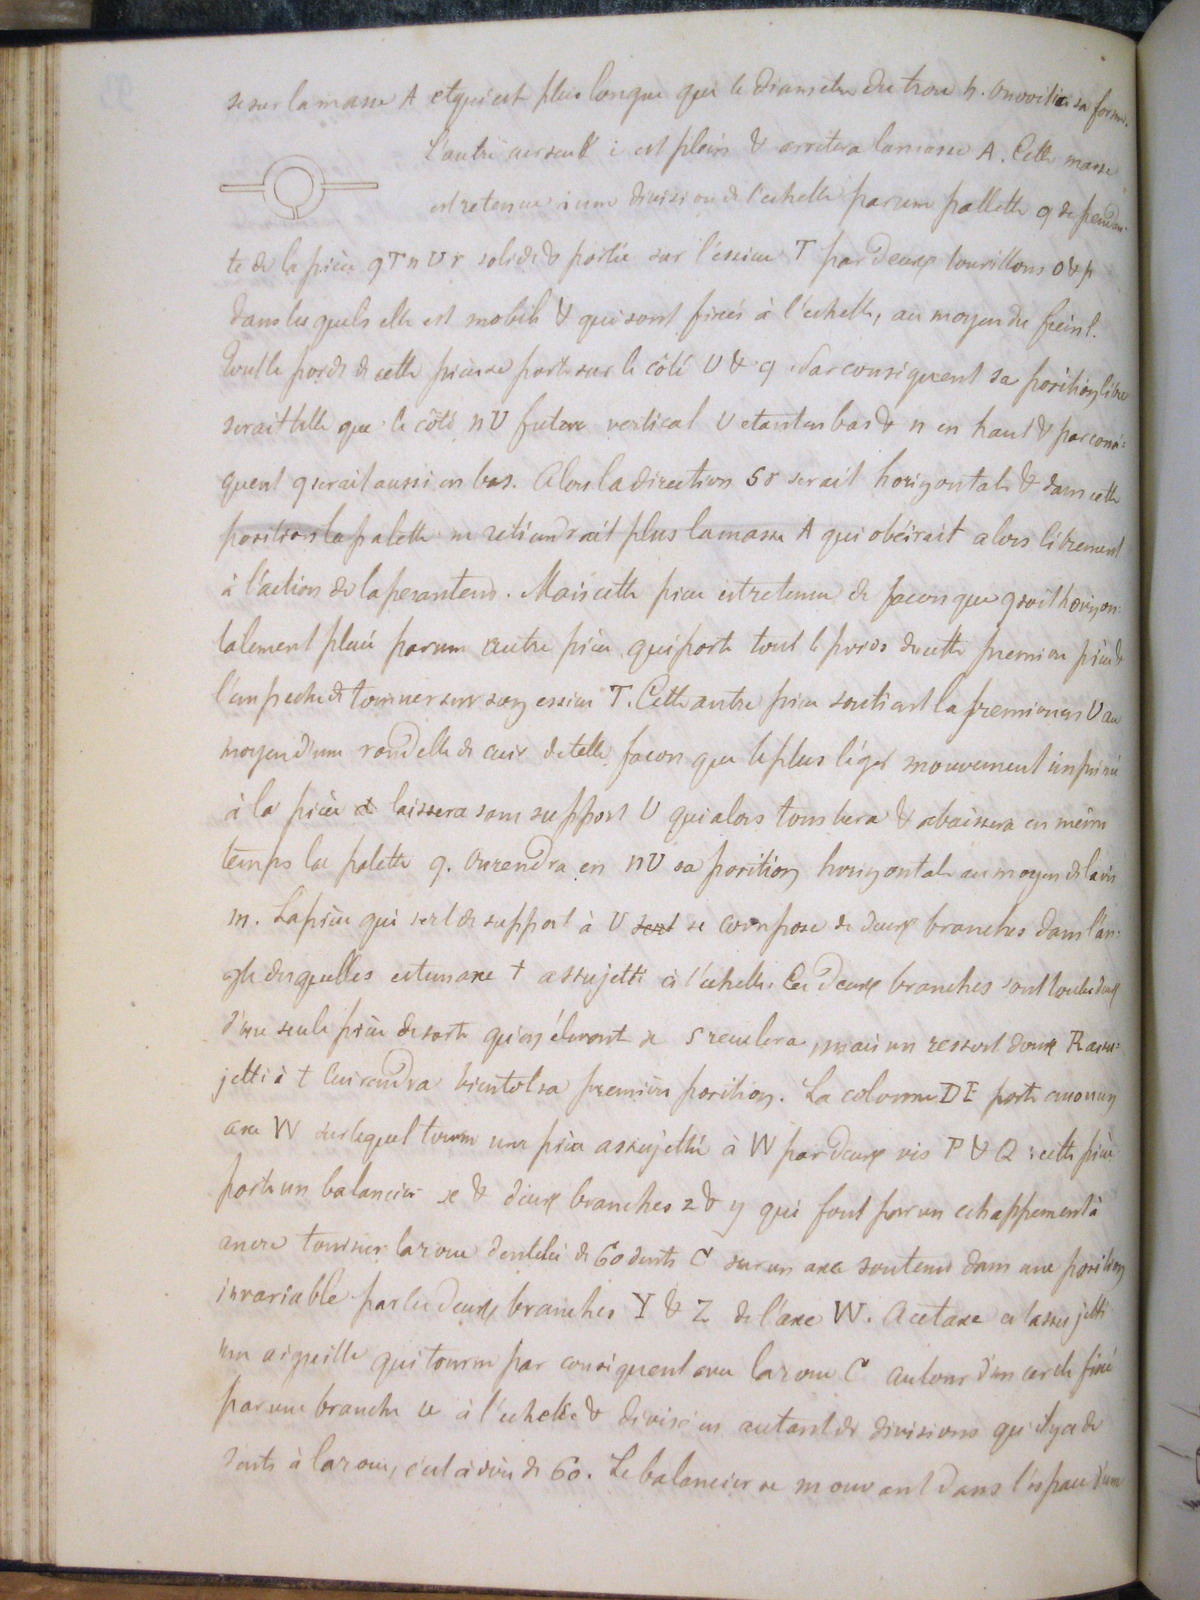 se sur la masse A et qui est plus longue que le diametre du trou h. On voit ici sa forme.
L'autre curseur i est plein & arretera la masse A. Cette masse
est retenue à une division de l'echelle par une pallette q dependan-
te de la pièce q T n U r solide & portée sur l'éssieu T par deux tourillons o & p
dans lesquels elle est mobile & qui sont fixés à l'echelle, au moyen du frein l.
Tout le poids de cette pièce se porte sur le côté U & q. Par conséquent sa position libre
serait telle que le côté nU fut vertical U etant en bas & n en haut & par consé=
quent q serait aussi en bas. Alors la direction sr serait horizontale & dans cette
position la palette ne retiendrait plus la masse A qui obéirait alors librement
à l'action de la pesanteur. Mais cette pièce est retenue de façon que q soit horizon=
talement placé par une autre pièce qui porte tout le poids de cette premiere pièce &
l'empeche de tourner sur son essieu T. Cette autre pièce soutient la premiere en U au
moyen d'une rondelle de cuir de telle façon que le plus léger mouvement imprimé
à la pièce laissera sans support U qui alors tombera & abaissera en même
temps la palette q. On rendra en nU sa position horizontale au moyen de la vis
m. La pièce qui sert de support à U sert se compose de deux branches dans l'an=
gle desquelles est un axe t assujetti à l'echelle. Ces deux branches sont toutes deux
d'une seule pièce de sorte qu'en élevant s reculera, mais un ressort doux R assu=
jetti à t lui rendra bientot sa première position. La colonne DE porte encore un
axe W sur lequel tourne une pièce assujettie à W par deux vis P & Q : cette pièce
porte un balancier x & deux branches z & y qui font par un echappement à
ancre tourner la roue dentelée de 60 dents C sur un axe soutenu dans une position
invariable par les deux branches Y & Z de l'axe W. A cet axe est assujetti
une aiguille qui tourne par conséquent avec la roue C autour d'un cercle fixé
par une branche u à l'echelle & divisé en autant de divisions qu'il y a de
dents à la roue, c'est à dire de 60. Le balancier se mouvant dans l'espace d'une